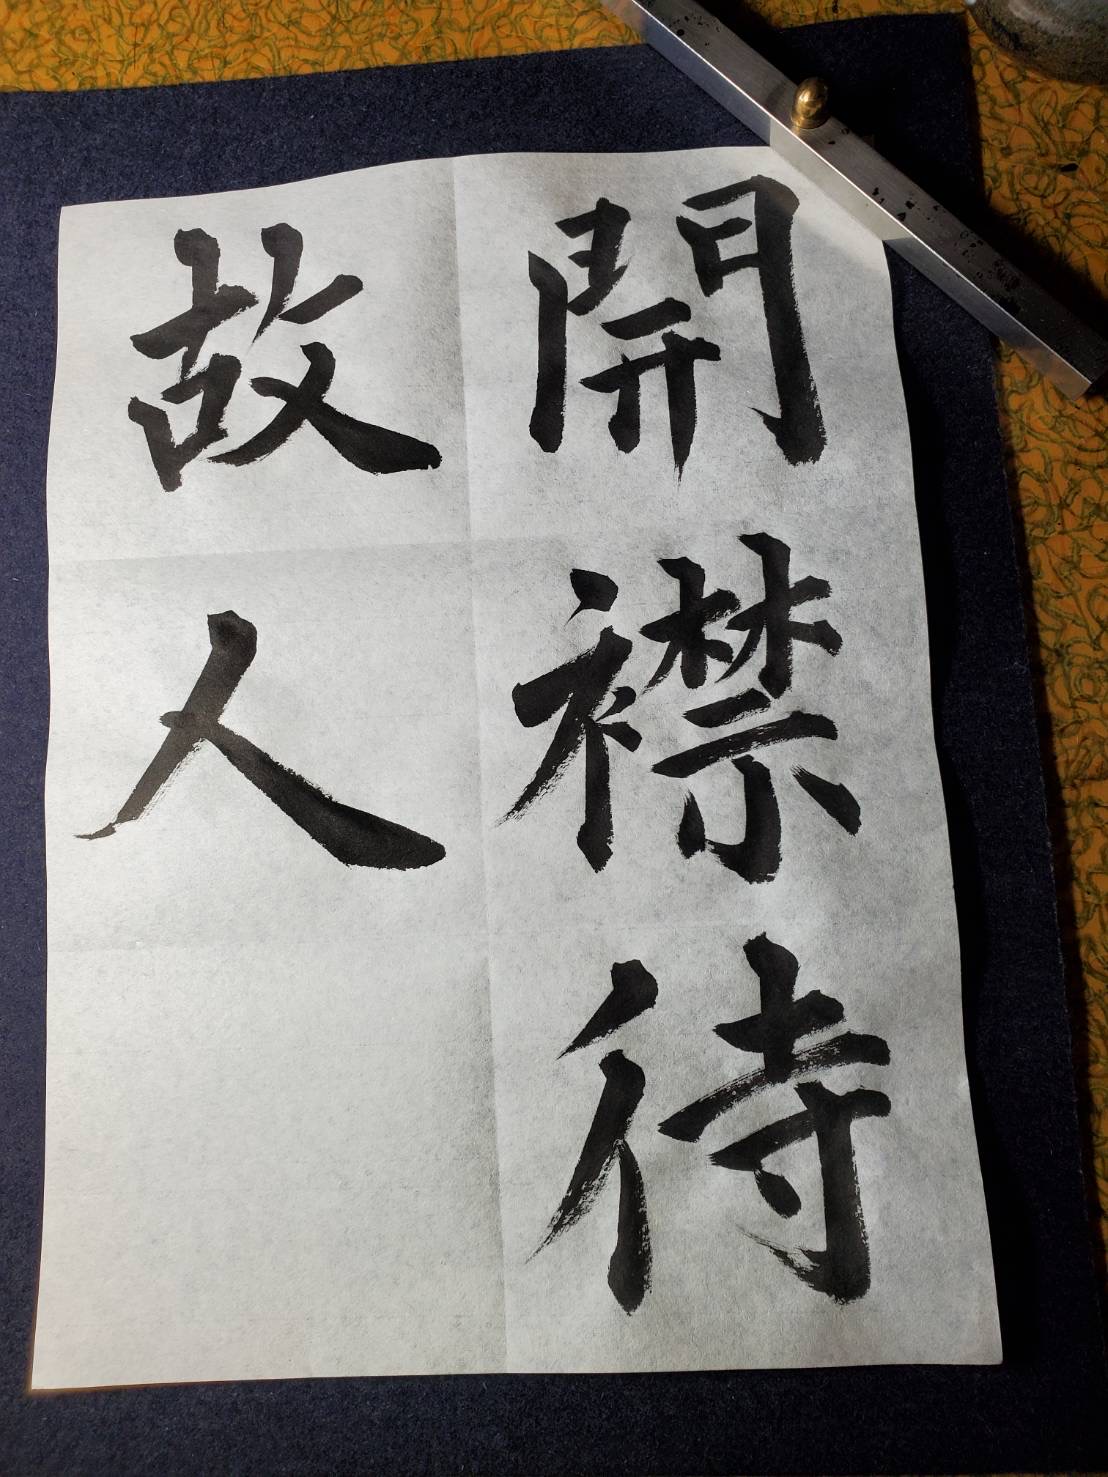 開襟待
故人